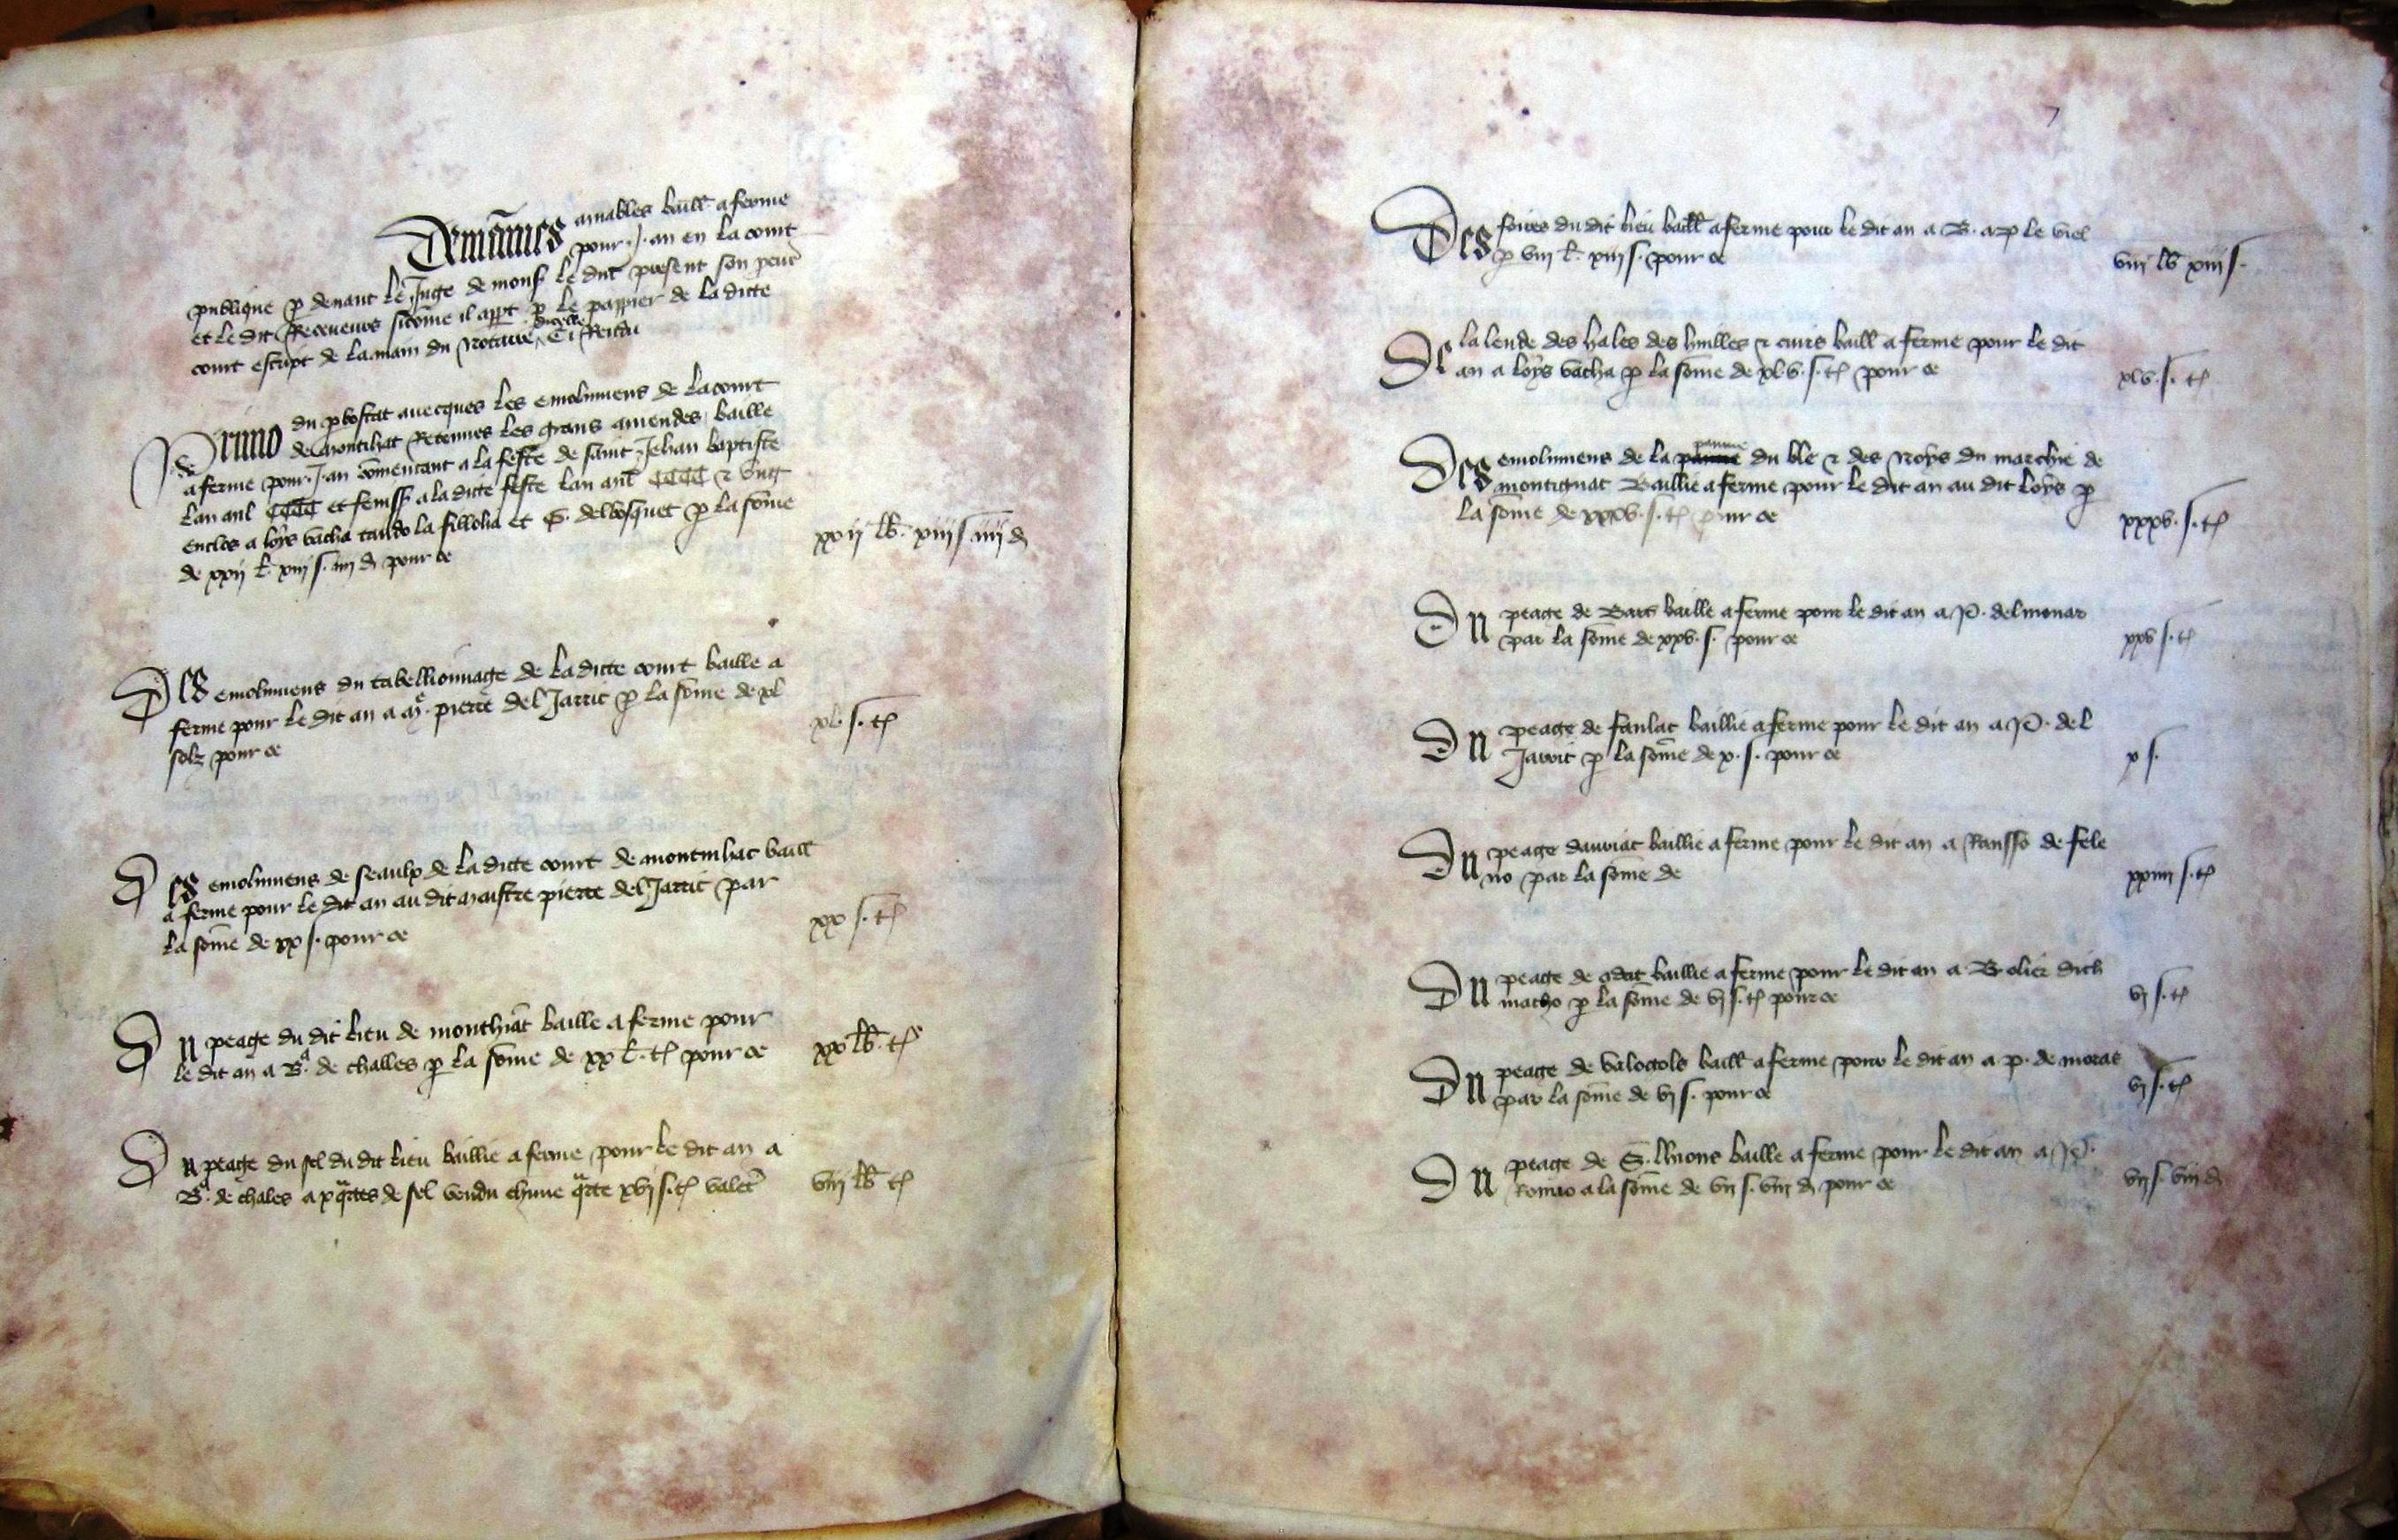 Demaines amables baill a ferme
pour .I. an en la court
publique p devant le Juge de mons le duc present son procur
et le dit Receveur sicome il appt p le pappier de la dicte
court escript de la main du Notaire dicelle
Primo du pvostat avecques les emolumens de la court
de montinhac Retenues les grans amendes baille
a ferme pour .I. an comencant a la feste de saint Jehan baptiste
lan mil CCCC et feniss a la dicte feste lan mil CCCC & Ung
enclos a loys vacha la fillolia et G. delbosquet p la some
de xxii l. xiii s. iiii d pour ce
xxii lb. xiii s. iiii d
Des emolumens du tabellionnage de la dicte court baille a
ferme pour le dit an a me. pierre del Jarric p la some de xl
solz pour ce
xl. s. t
Des emolumens de seaulx de la dicte court de montinhac baill
a ferme pour le dit an au dit maistre pierre del Jarric par
la some de xx s. pour ce
xx s. t
Du peage du dit lieu de monthiac baille a ferme pour
le dit an a Bd. de challes p la some de xx l. t pour ce
xx lb. t
Du peage du sel du dit lieu baillie a ferme pour le dit an a
Bd. de chales a x qrtes de sel vendu chune qrte xvi s. t valet
viii lb t
Des foires du dit lieu baill a ferme pour le dit an a B. le viel
p viii l. xiii s. pour ce
viii lb xiii s.
De la lende des hales des huilles & cuirs baill a ferme pour le dit
an a loys vacha p la some de xl.v. s. t pour ce
xlv. s. t
Des emolumens de la paume du ble & des Noys du marchie de
montignac Baillie a ferme pour le dit an au dit loys p
la some de xxxv. s. t pour ce
xxxv. s. t
Du peage de Bars baille a ferme pour le dit an a P. delmonar
par la some de xxv. s. pour ce
xxv s. t
Du peage de fanlac baillie a ferme pour le dit an a P. del
Jarric p la some de x. s. pour ce
x s.
Du peage dauriac baillie a ferme pour le dit an a de fele
no par la some de
xxiiii s. t
Du peage de baillie a ferme pour le dit an a B olier dich
macho p la some de vi s. t pour ce
vi s. t
Du peage de valoiols baill a ferme pour le dit an a p. de morat
par la some de vi s. pour ce
vi s. t
Du peage de S. baille a ferme pour le dit an a P.
a la some de vii s. viii d pour ce
vii s. viii d